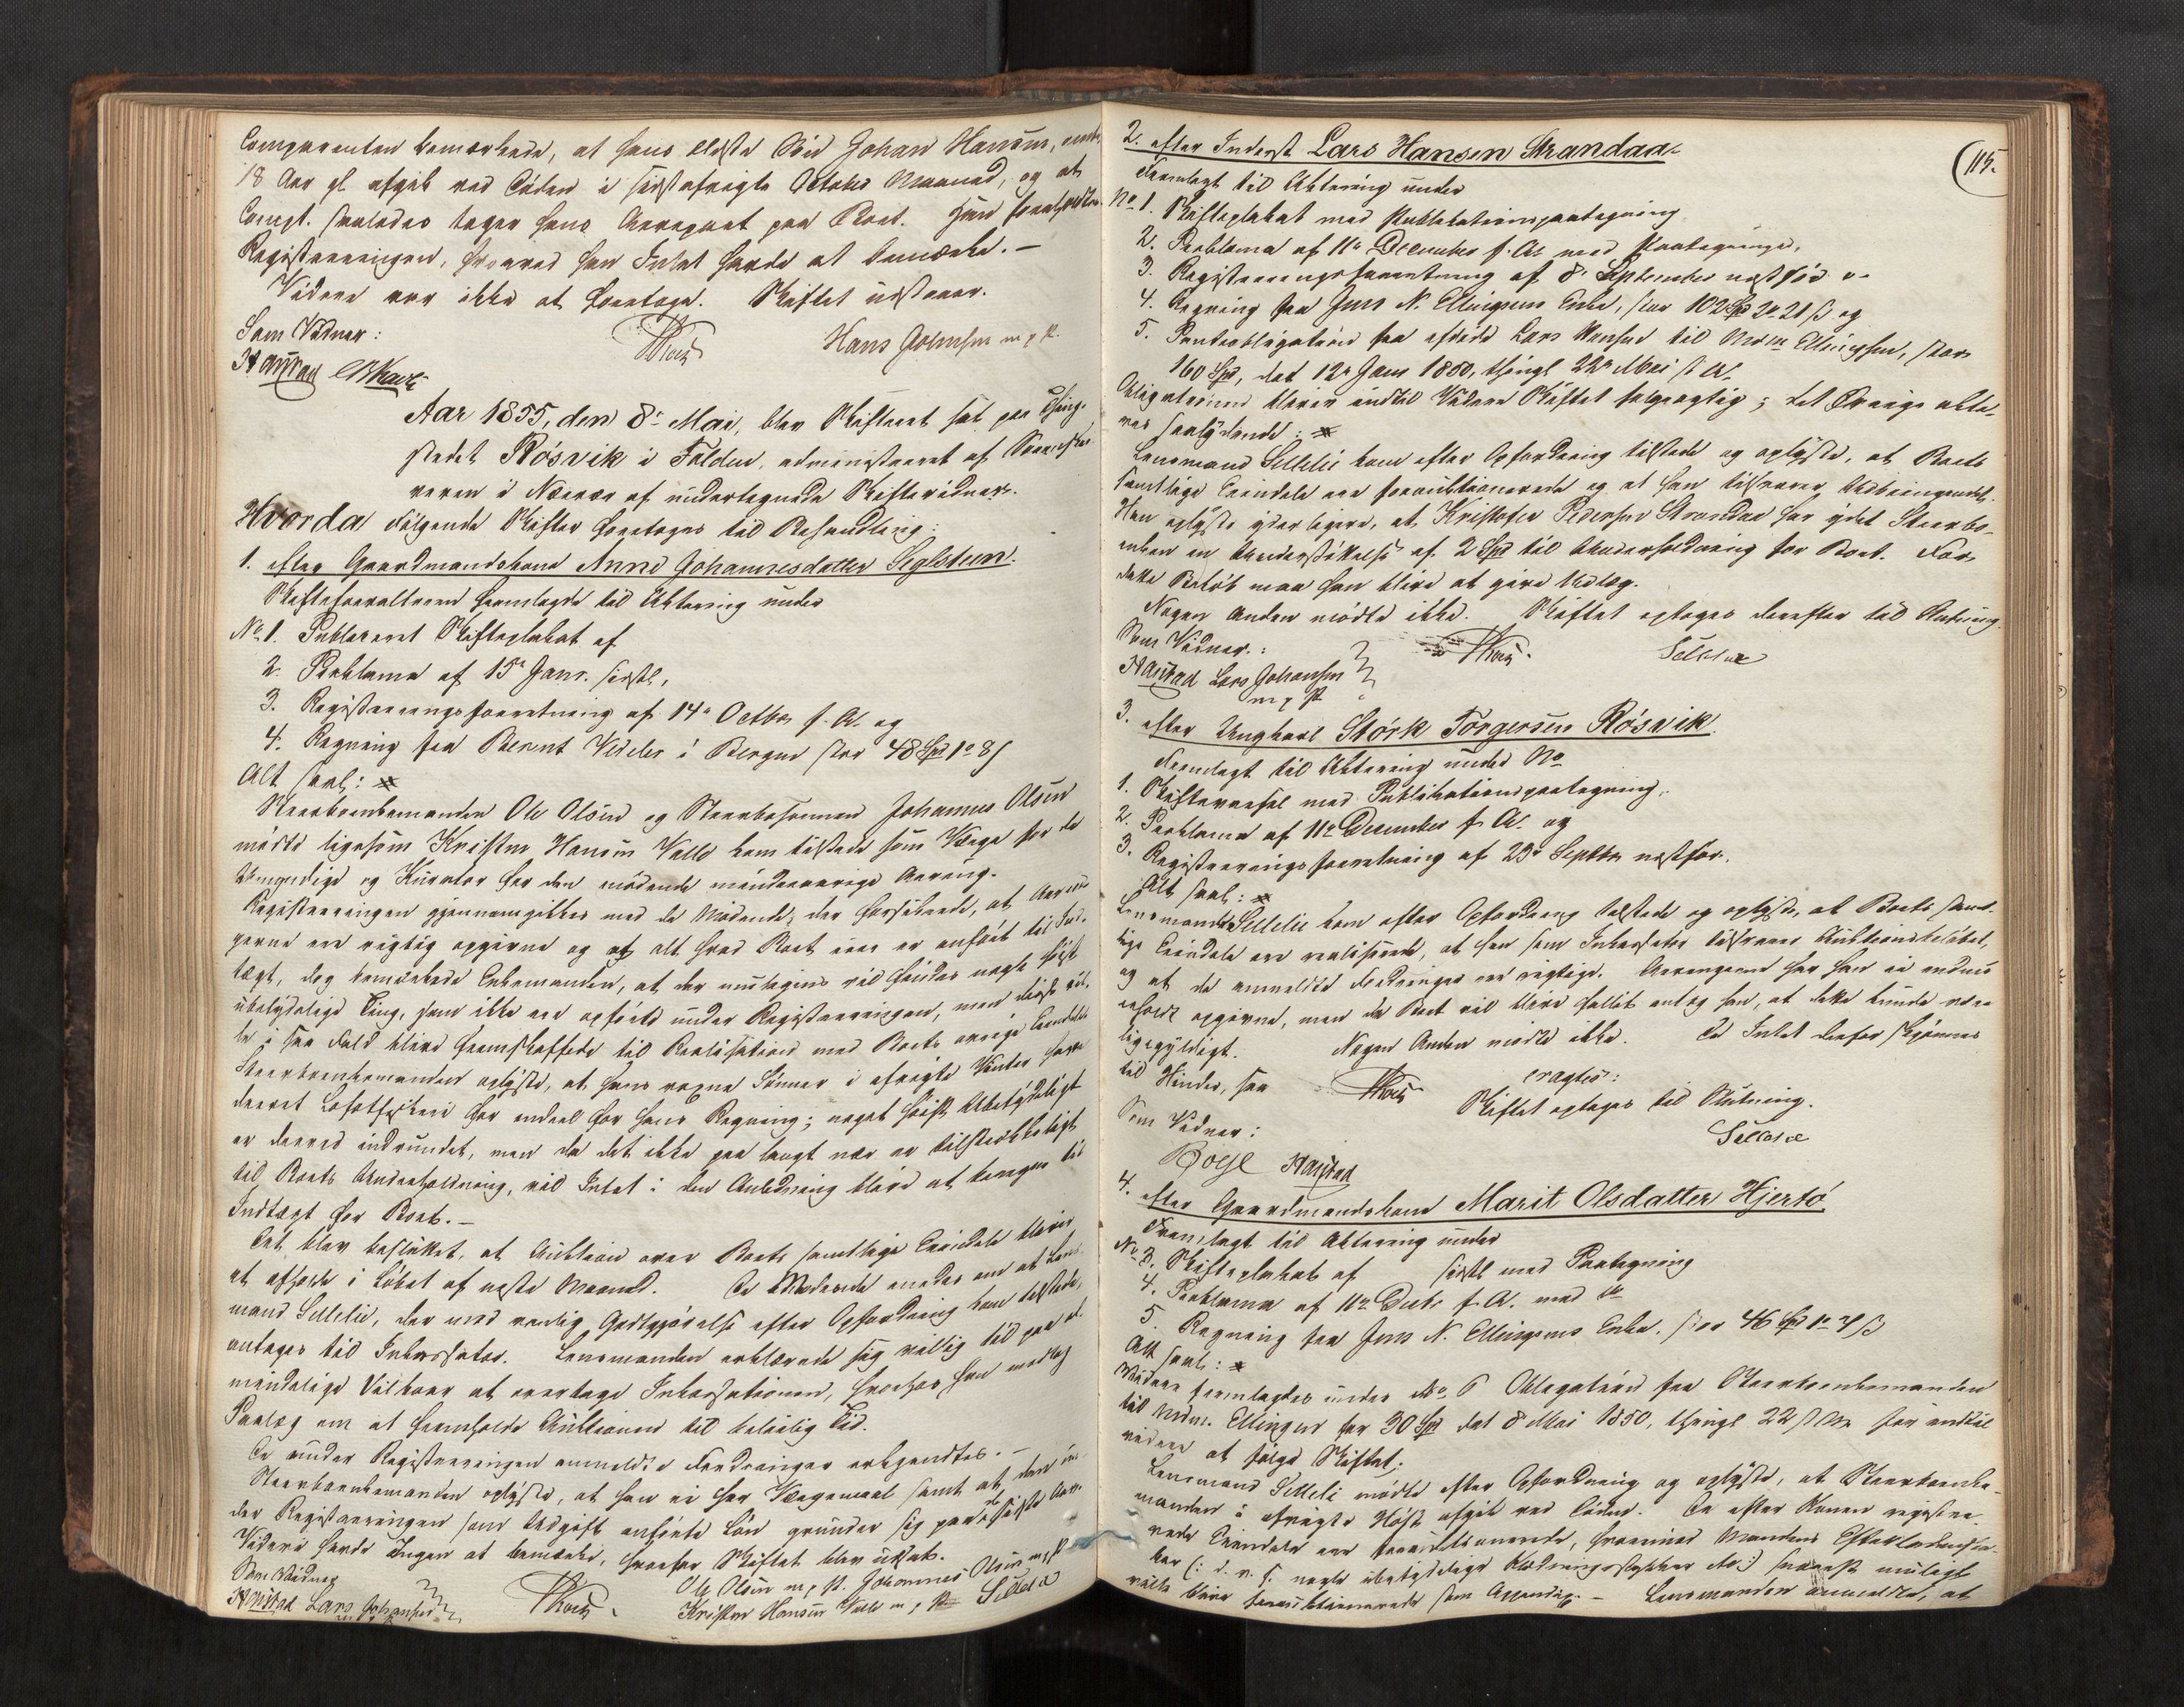 Comparenten bemærkede, at hans ældste Søn Johan Hansen,
18 Aar gl. afgik ved Døden i sidstafvigte Octobr Maaned, og at
Compt. saaledes tager hans Arvepart paa Boet. Hun foreholdtes
Registreringen, hvorved han Intet havde at bemærke. —
Videre var ikke at foretage. Skiftet udstaaer.
Som Vidner:
Hans Johnsen m. p. P.
Aar 1855, den 8de Mai, blev Skifteret sat paa Thing-
stedet Rösvik i Folden, administreret af Sorenskri-
veren i Nærvær af undertegnede Skiftevidner.
Hvorda følgende Skifter foretoges til Behandling:
1. efter Gaardmandskone Anne Johannesdatter Seglsteen.
Skifteforvalteren fremlagde til Aktering under
No 1. Publiceret Skifteplakat af
2. Proklama af 15de Janr. sidstl,
3. Registreringsforretning af 14de Octbr f. A. og
4. Regning fra Berent Vedeler i Bergen stor 48 Spd 1 o 8 s
Alt saal:
Stervboenkemanden Ole Olsen og Stervbosønnen Johannes Olsen
mødte ligesom Kristen Hansen Valle kom tilstede som Værge for de
Umyndige og Kurator for den mødende mindreaarige Arving.
Registreringen gjennemgikkes med de Mødende, der forsikrede, at Arvin-
gerne ere rigtig opgivne og at alt hvad Boet eier er anført til Ind-
tægt, dog bemærkede Enkemanden, at der muligens vil findes nogle høist
ubetydelige Ting, som ikke ere opførte under Registreringen, men disse vil-
le i saa Fald blive fremskaffede til Realisation med Boets øvrige Eiendele
Stervboenkemanden oplyste, at hans voxne Sønner i afvigte Vinter have
drevet Lofotfiskeri for endeel for hans Regning; noget høist Ubetydeligt
er derved indvundet, men da det ikke paa langt nær er tilstrækkeligt
til Boets Underholdning, vil Intet i den Anledning blive at beregne til
Indtægt for Boet. —
Det blev besluttet, at Auktion over Boets samtlige Eiendele bliver
at afholde i Løbet af næste Maaned. De Mødende enedes om at Lens-
mand Sellelie, der mod vanlig Godtgjørelse efter Opfordring kom tilstede,
antages til Inkassator. Lensmanden erklærede sig villig til paa al-
mindelige Vilkaar at overtage Inkassationen, hvorhos han modtog
Paalæg om at fremholde Auktionen til beleilig Tid.
De under Registreringen anmeldte Fordringer erkjendtes. —
Stervboenkemanden oplyste, at han ei har Værgemaal samt at den un-
der Registreringen som Udgift anførte Løn grunder sig paa de sidste Aar.
Videre havde Ingen at bemærke, hvorfor Skiftet blev udsat.
Som Vidner
Lars Johansen
Ole Olsen m. p. P. Johannes Olsen m. p. P.
Kristen Hansen Valle m. p. P. Sellelie
115.
2. efter Inderst Lars Hansen Strandaa
Fremlagt til Aktering under
No 1. Skifteplakat med Publikationspaategning
2. Proklama af 11te December f. A. med Paategninge,
3. Registreringsforretning af 8de September næstfør
4. Regning fra Jens N. Ellingsens Enke, stor 102 Spd 2 o 21 s og
5. Panteobligation fra afdøde Lars Hansen til Mdm Ellingsen, stor
160 Spd, dat 12te Janr 1850, thingl 22de Mai s. A.
Obligationen bliver indtil Videre Skiftet følgagtig; det Øvrige akte-
res saalydende:
Lensmand Sellelie kom efter Opfordring tilstede og oplyste, at Boets
samtlige Eiendele ere forauktionerede og at han tilsvarer
Han oplyste yderligere, at Kristofer Pedersen Strandaa har ydet Stervbo-
enken en Understøttelse af 2 Spd til Underholdning for Boet. For
dette Beløb maa han blive at gives Udlæg.
Nogen Anden mødte ikke. Skiftet optages derefter til Slutning.
Som Vidner:
Lars Johansen m p P
Sellelie
3. efter Ungkarl Störk Torgersen Rösvik.
Fremlagt til Aktering under No
1. Skiftevarsel med Publikationspaategning,
2. Proklama af 11te December f. A. og
3. Registreringsforretning af 29de Septbr næstfør.
Alt saal:
Lensmand Sellelie kom efter Opfordring tilstede og oplyste, at Boets samt-
lige Eiendele ere realiserede, at han som Inkassator tilsvarer Auktionsbeløbet,
og at de anmeldte Fordringer ere rigtige. Arvingerne har han ei endnu
erholdt opgivne, men da Boet vil blive fallit antog han, at dette kunde være
ligegyldigt. Nogen Anden mødte ikke. Da Intet derfor skjønnes
til Hinder, saa
eragtes:
Skiftet optages til Slutning.
Som Vidner:
Sellelie
4. efter Gaardmandskone Marit Olsdatter Hjertö.
Fremlagt til Aktering under
No 3. Skifteplakat af sidstl med Paategning
4. Proklama af 11te Decbr f. A. med
5. Regning fra Jens N. Ellingsens Enke, stor 46 Spd 1 o 7 s
Alt saal:
Videre fremlagdes under No 6 Obligation fra Stervboenkemanden
til Mdm. Ellingsen for 30 Spd dat 8 Mai 1850, thingl 22 s. M. for indtil
videre at følge Skiftet.
Lensmand Sellelie mødte efter Opfordring og oplyste, at Stervboenke-
manden i afvigte Høst afgik ved Døden. De efter Konen registre-
rede Eiendele ere forauktionerede, hvorimod Mandens Efterladenska-
ber (: d. v. s. nogle ubetydelige Klædningsstykker :) snarest muligt
ville blive forauktionerede som Appendix. — Lensmanden anmeldte, at